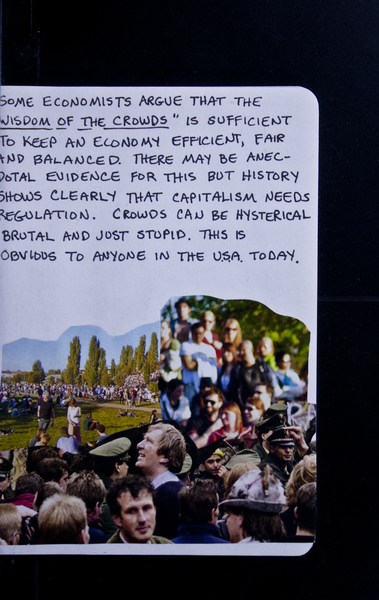 SOME ECONOMISTS ARGUE THAT THE
WISDOM OF THE CROWDS" IS SUFFICIENT
TO KEEP AN ECONOMY EFFICIENT, FAIR
AND BALANCED. THERE MAY BE ANEC-
DOTAL EVIDENCE FOR THIS BUT HISTORY
SHOWS CLEARLY THAT CAPITALISM NEEDS
REGULATION. CROWDS CAN BE HYSTERICAL
BRUTAL AND JUST STUPID. THIS IS
OBVIOUS TO ANYONE IN THE U.S.A. TODAY.